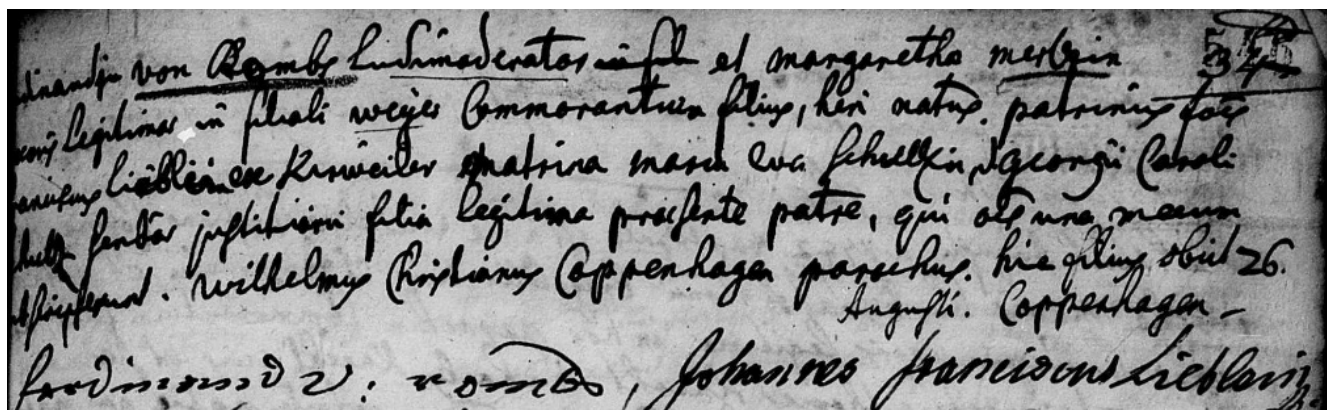 von Rombs Ludimoderator et margaretha merlzin
legitimor in filiali weyer Commorantium filius, heri natus. patrinus fuit
Lieblein ex Kirweiler matrina maria Eva Schultzin, Georgii Caroli
filia legitima praesente patre, qui oes una mecum
Wilhelmus Christianus Coppenhagen parochus. hic filius obiit 26.
Augusti. Coppenhagen
ferdinand v. rombs, Johannes franciscus Lieblein